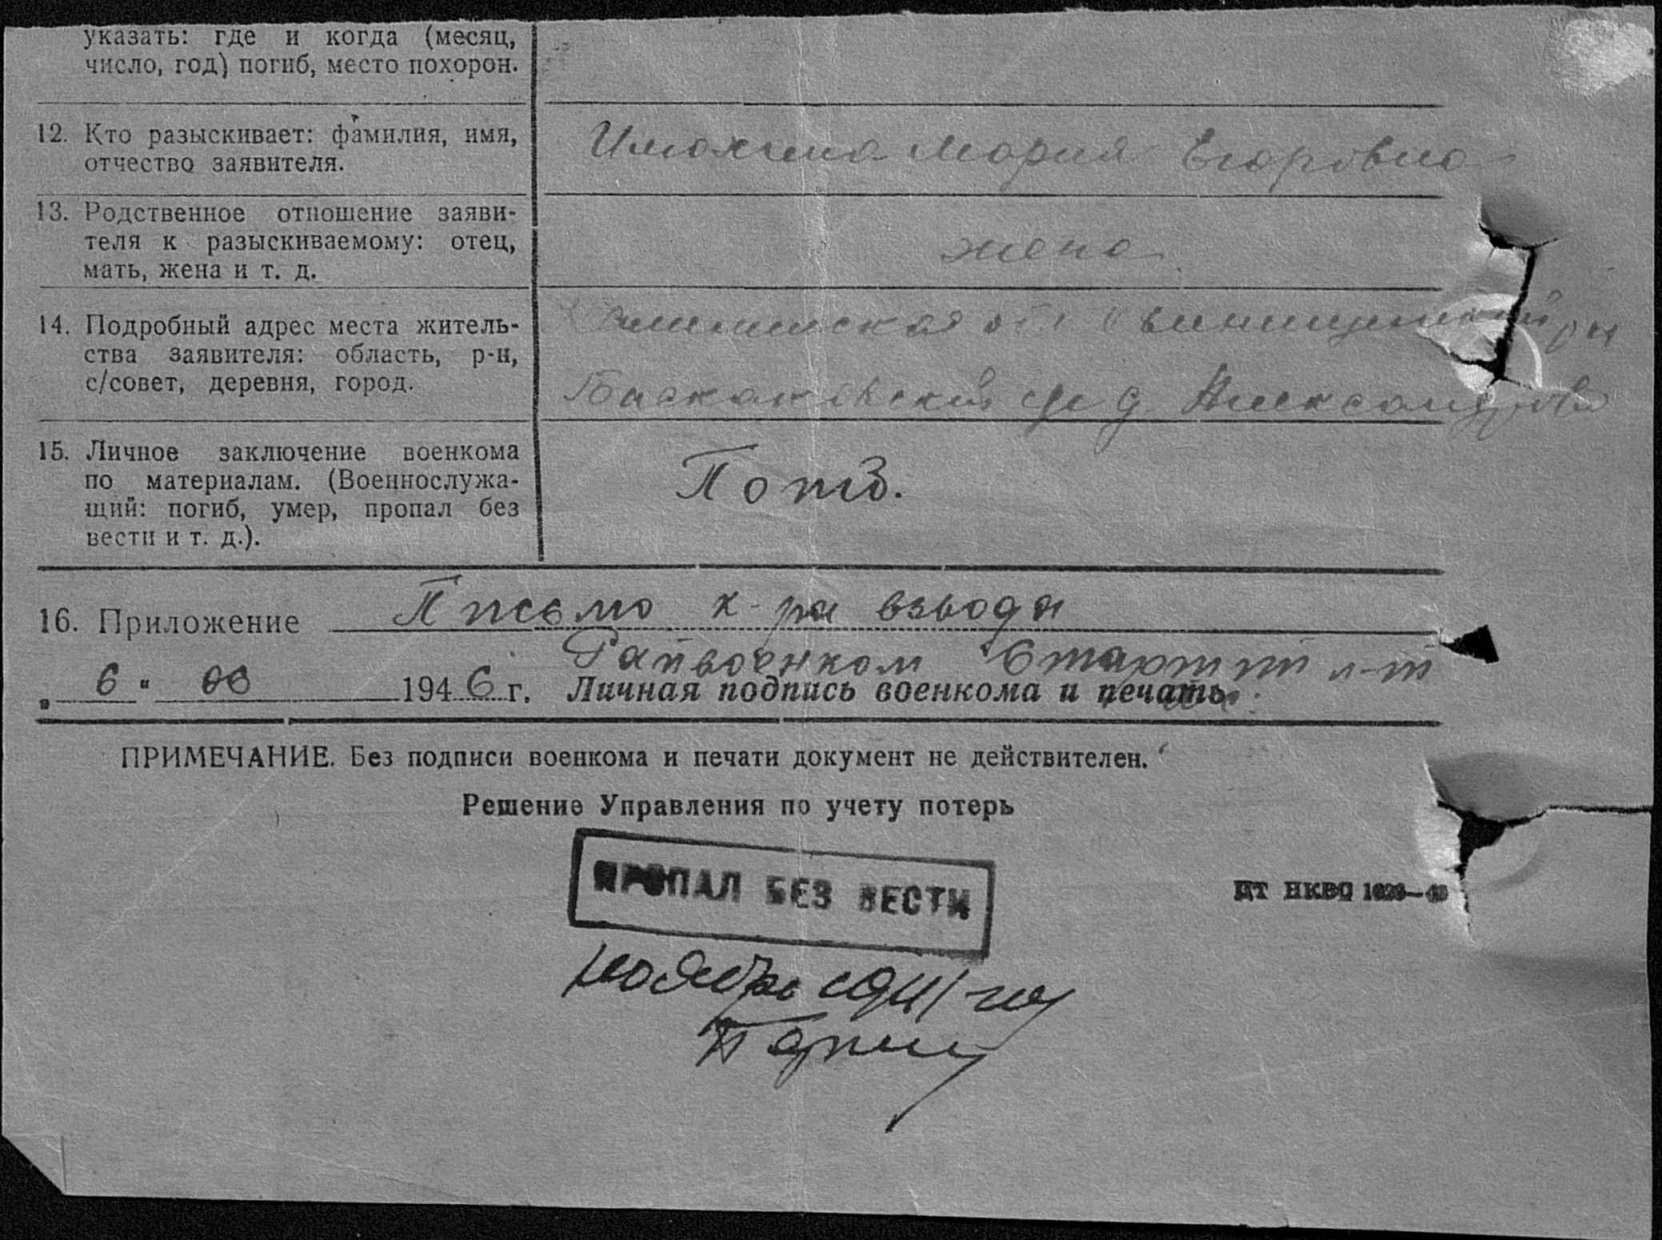 указать: где и когда (месяц,
число, год) погиб, место похорон.
12. Кто разыскивает: фамилия, имя,
отчество заявителя.
Мария Егоровна
13. Родственное отношение заяви-
теля к разыскиваемому: отец,
мать, жена и т. д.
жена
14. Подробный адрес места житель-
ства заявителя: область, р-н,
с/совет, деревня, город.
Калининская обл Овинищенский р-н
Баскаковский с/с д
15. Личное заключение военкома
по материалам. (Военнослужа-
щий: погиб, умер, пропал без
вести и т. д.).
16. Приложение Письмо к-ра взвода
Райвоенком л-т
„ 6 " 194 6 г. Личная подпись военкома и печать
ПРИМЕЧАНИЕ. Без подписи военкома и печати документ не действителен.
Решение Управления по учету потерь
ПРОПАЛ БЕЗ ВЕСТИ
ноябрь 1941